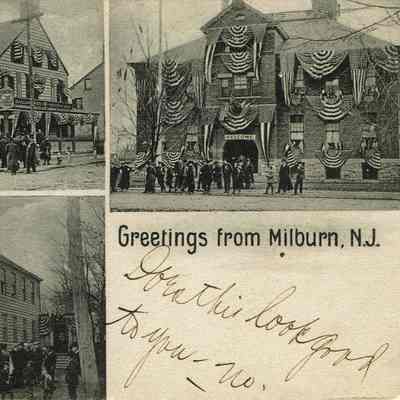 WELCOME
Greetings from Milburn, N.J.
Does this look good
to you – no.